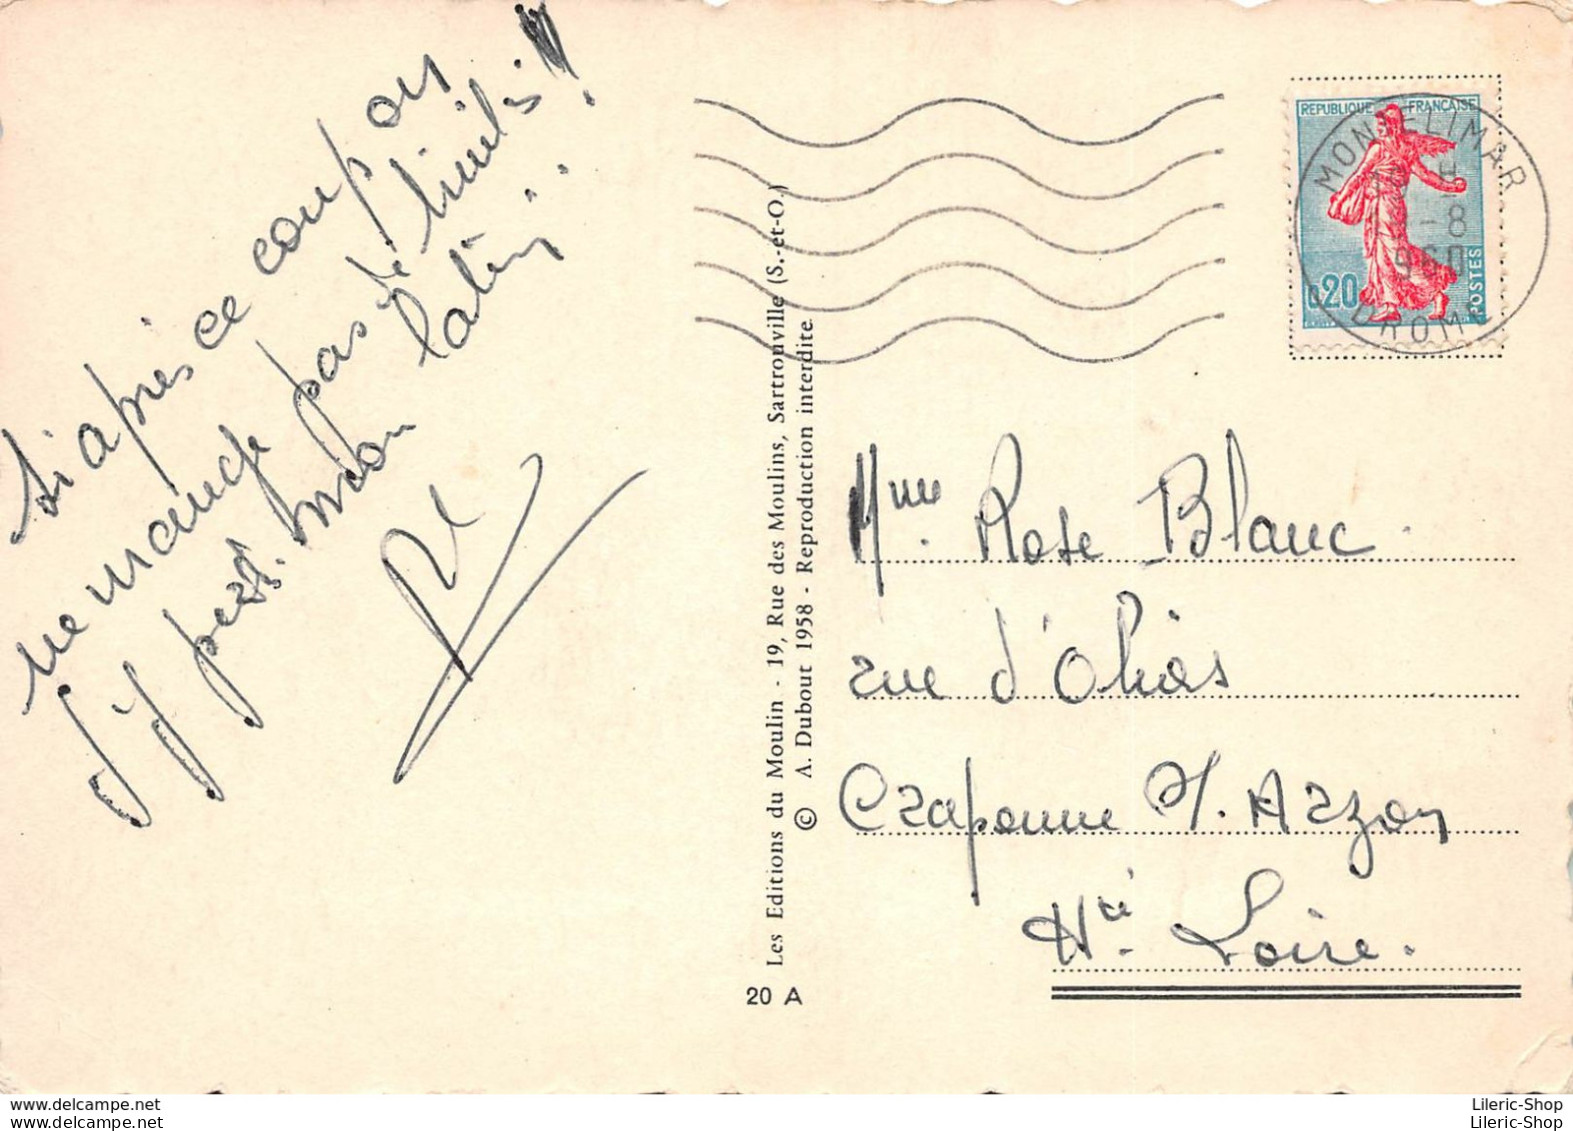 si après ce coup on
ne mange pas de
j'y perds mon latin
Les Editions du Moulin - 19, Rue des Moulins, Sartrouville (S.-et-O.)
© A. Dubout 1958 - Reproduction interdite
20 A
REPUBLIQUE FRANÇAISE
0,20
POSTES
MONTELIMAR
-8
1960
DROME
Mme Rose Blanc
rue d'
Craponne s/. Arzon
Hte. Loire.
Lileric-Shop
Lileric-Shop
Lileric-Shop
Lileric-Shop